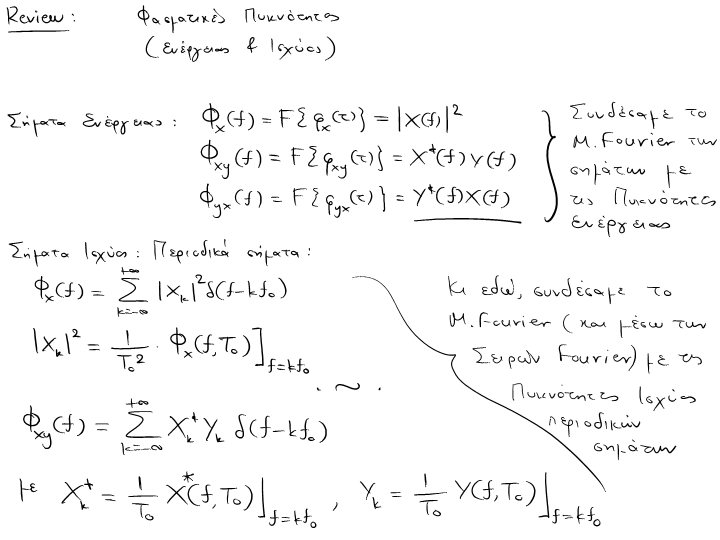 Review: Φασματικές Πυκνότητες
(Ενέργειας & Ισχύος)
Σήματα Ενέργειας: Φ_x(f) = F{φ_x(τ)} = |X(f)|^2
Φ_xy(f) = F{φ_xy(τ)} = X*(f)Y(f)
Φ_yx(f) = F{φ_yx(τ)} = Y*(f)X(f)
Συνδέσαμε το
Μ.Fourier των
σημάτων με
τις Πυκνότητες
Ενέργειας
Σήματα Ισχύος: Περιοδικά σήματα:
Φ_x(f) = Σ_{k=-∞}^{+∞} |X_k|^2 δ(f-kf_0)
|X_k|^2 = 1/T_0^2 · Φ_x(f,T_0)]_{f=kf_0}
Κι εδώ, συνδέσαμε το
Μ.Fourier (και μέσω των
Σειρών Fourier) με τις
Πυκνότητες Ισχύος
περιοδικών
σημάτων
. ~ .
Φ_xy(f) = Σ_{k=-∞}^{+∞} X_k* Y_k δ(f-kf_0)
με X_k* = 1/T_0 X*(f,T_0)]_{f=kf_0} , Y_k = 1/T_0 Y(f,T_0)]_{f=kf_0}